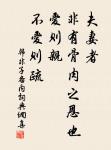 夫妻者
非有骨肉之恩也
愛則親
不愛則疏
韓非子備內詞典網集